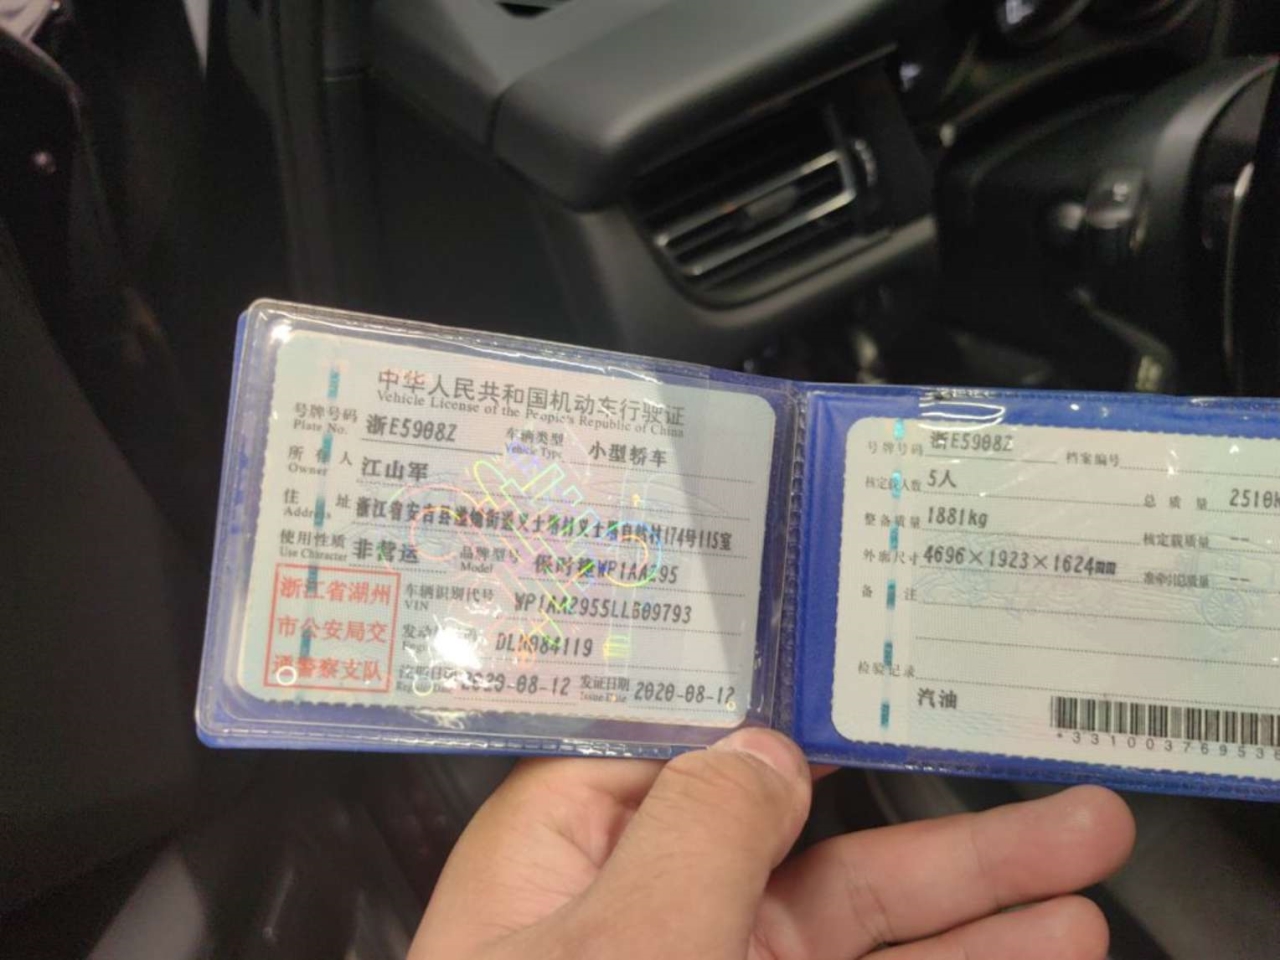 中华人民共和国机动车行驶证
Vehicle License of the People's Republic of China
号牌号码 浙E5908Z 车辆类型 小型轿车
Plate No. Vehicle Type
所有人 江山军
Owner
住址 浙江省安吉县递铺街道义士塔村义士塔自然村174号115室
Address
使用性质 非营运 品牌型号 保时捷WP1AA295
Use Character Model
浙江省湖州
市公安局交
通警察支队
车辆识别代号 WP1AA2955LLB09793
VIN
发动 DLH084119
注册日期 2020-08-12 发证日期 2020-08-12
Issue Date
号牌号码 浙E5908Z 档案编号
核定载人数 5人 总质量 2510
整备质量 1881kg 核定载质量 --
外廓尺寸 4696×1923×1624mm 准牵引总质量 --
备注
检验记录
汽油
*331003769538